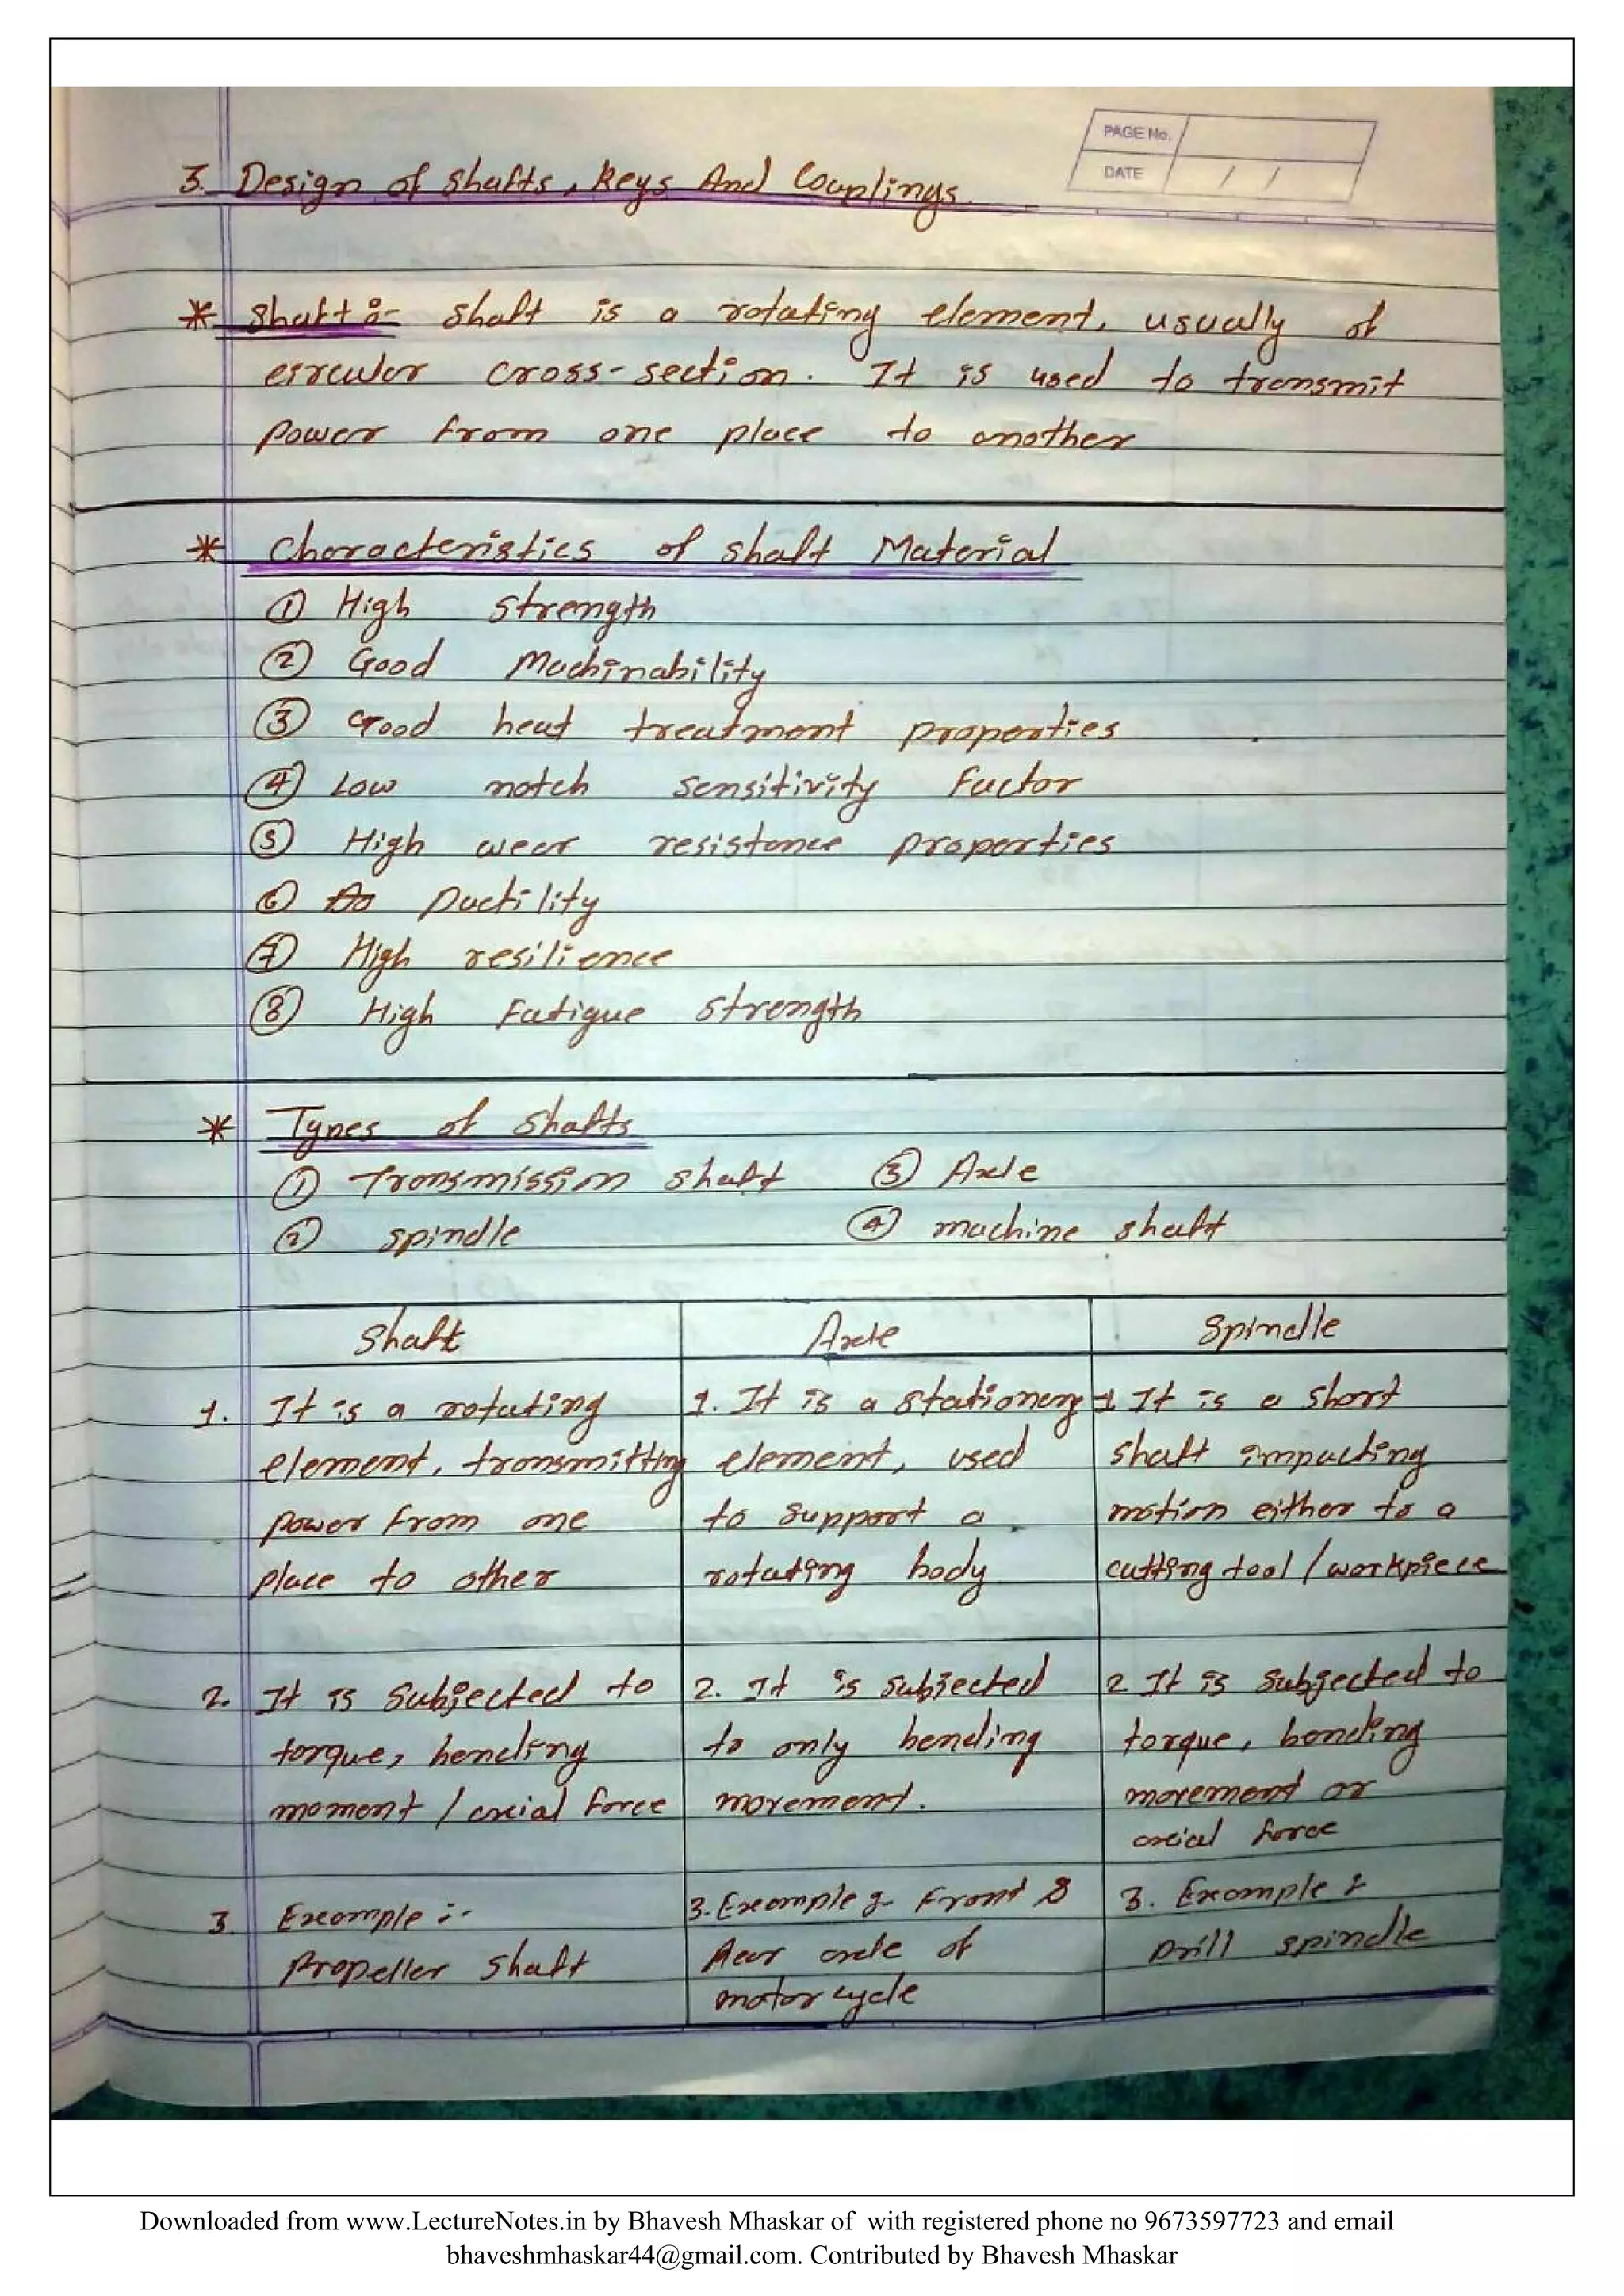 PAGE No.
DATE / /
3. Design of Shafts, Keys And Couplings
* Shaft :- Shaft is a rotating element, usually of
circular cross-section. It is used to transmit
power from one place to another
* Characteristics of shaft Material
① High strength
② Good Machinability
③ Good heat treatment properties
④ Low notch sensitivity Factor
⑤ High wear resistance properties
⑥ Ductility
⑦ High resilience
⑧ High Fatigue strength
* Types of Shafts
① Transmission shaft ③ Axle
② spindle ④ machine shaft
Shaft Axle Spindle
1. It is a rotating 1. It is a stationery 1. It is a short
element, transmitting element, used shaft impacting
power from one to support a motion either to a
place to other rotating body cutting tool / workpiece
2. It is subjected to 2. It is subjected 2. It is subjected to
torque, bending to only bending torque, bending
moment / axial force movement. movement or
axial force
3. Example :- 3. Example :- Front & 3. Example :-
Propeller shaft Rear axle of Drill spindle
motor cycle
Downloaded from www.LectureNotes.in by Bhavesh Mhaskar of with registered phone no 9673597723 and email
bhaveshmhaskar44@gmail.com. Contributed by Bhavesh Mhaskar